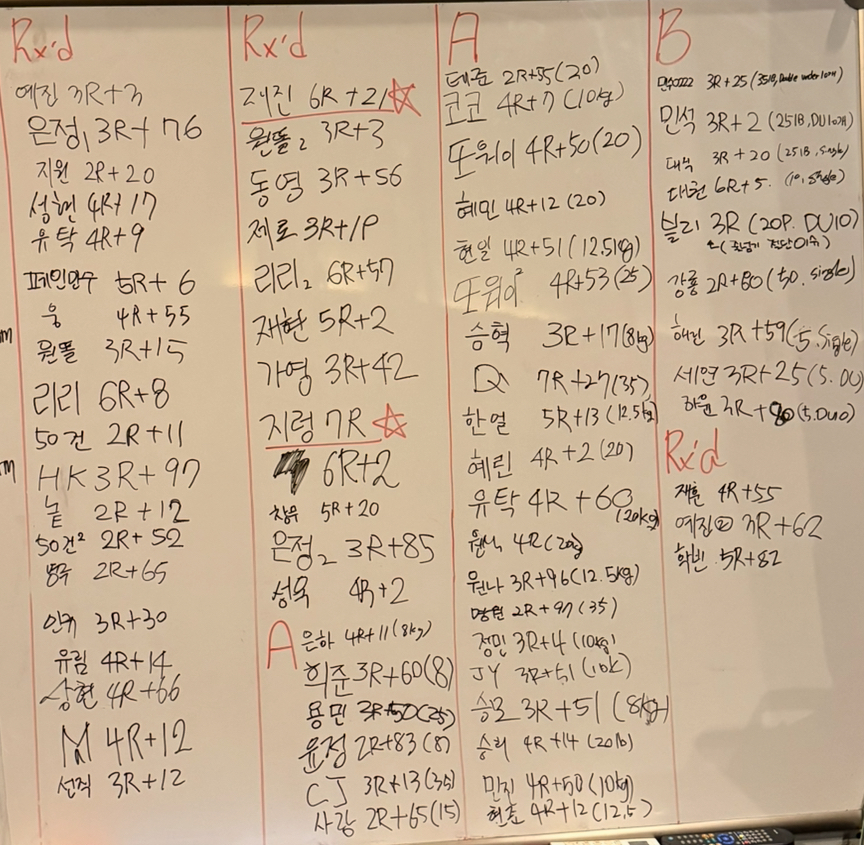 Rx'd
예진 3R+3
은정1 3R+76
지원 2R+20
성현 4R+17
유탁 4R+9
페인양수 5R+6
웅 4R+55
원뜰 3R+15
리리 6R+8
50건 2R+11
HK 3R+97
2R+12
50건² 2R+52
2R+65
3R+30
유림 4R+14
상현 4R+66
M 4R+12
선직 3R+12
Rx'd
재진 6R+21
원뜰2 3R+3
동영 3R+56
제로 3R+19
리리2 6R+57
재현 5R+2
가영 3R+42
지렁 7R
6R+2
창유 5R+20
은정2 3R+85
성욱 4R+2
A
은하 4R+11(8kg)
희준 3R+60(8)
용민 3R+50(25)
윤정 2R+83(8)
CJ 3R+13(35)
사랑 2R+65(15)
A
태준 2R+55(20)
코코 4R+7(10kg)
또위이 4R+50(20)
혜민 4R+12(20)
현일 4R+51(12.5kg)
또위이² 4R+53(25)
승혁 3R+17(8kg)
Q 7R+27(35)
한얼 5R+13(12.5kg)
혜린 4R+2(20)
유탁 4R+60
(20kg)
4R(20kg)
원나 3R+96(12.5kg)
2R+97(35)
정민 3R+4(10kg)
JY 3R+51(10K)
승모 3R+51(8kg)
승리 4R+14(20lb)
민지 4R+50(10kg)
현준 4R+12(12.5)
B
3R+25(35lB, Double under 10개)
민석 3R+2(25lB, DU10개)
대욱 3R+20(25lB, single)
대권 6R+5. (10, single)
블리 3R(20P. DU10)
강룡 2R+80(50. single)
해린 3R+59(5. single)
세연 3R+25(5. DU)
하윤 3R+80(5. DU10)
Rx'd
재훈 4R+55
예진② 3R+62
학빈 5R+82